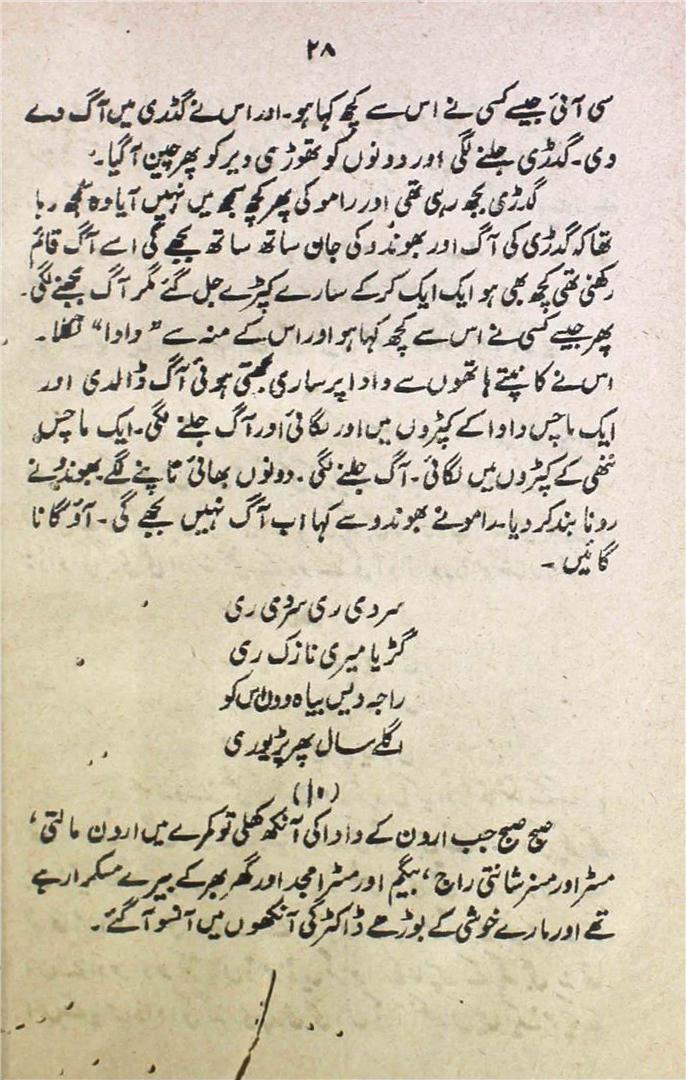 ۲۸
سی آئی جیسے کسی نے اس سے کچھ کہا ہو۔ اور اس نے گدڑی میں آگ دے
دی۔ گدڑی جلنے لگی اور دونوں کو تھوڑی دیر کو پھر چین آگیا۔
گدڑی بجھ رہی تھی اور رامو کی پھر کچھ سمجھ میں نہیں آیا وہ سمجھ رہا
تھا کہ گدڑی کی آگ اور بھوندو کی جان ساتھ ساتھ بجھے گی اسے آگ قائم
رکھنی تھی کچھ بھی ہو ایک ایک کرکے سارے کپڑے جل گئے مگر آگ بجھنے لگی۔
پھر جیسے کسی نے اس سے کچھ کہا ہو اور اس کے منہ سے "دادا" نکلا۔
اس نے کانپتے ہاتھوں سے دادا پر ساری بجھتی ہوئی آگ ڈالدی اور
ایک ماچس دادا کے کپڑوں میں اور لگائی اور آگ جلنے لگی۔ ایک ماچس
ننھی کے کپڑوں میں لگائی۔ آگ جلنے لگی۔ دونوں بھائی تاپنے لگے۔ بھوندو نے
رونا بند کر دیا۔ رامو نے بھوندو سے کہا اب آگ نہیں بجھے گی۔ آؤ گانا
گائیں۔
سردی ری سردی ری
گڑیا میری نازک ری
راجہ دیس بیاہ دوں اس کو
اگلے سال پھر پڑیوری
(۱۰)
صبح صبح جب ارون کے دادا کی آنکھ کھلی تو کمرے میں ارون مالتی،
مسٹر اور مسز شانتی راج، بیگم اور مسٹر امجد اور گھر بھر کے بیرے مسکرا رہے
تھے اور مارے خوشی کے بوڑھے ڈاکٹر کی آنکھوں میں آنسو آگئے۔